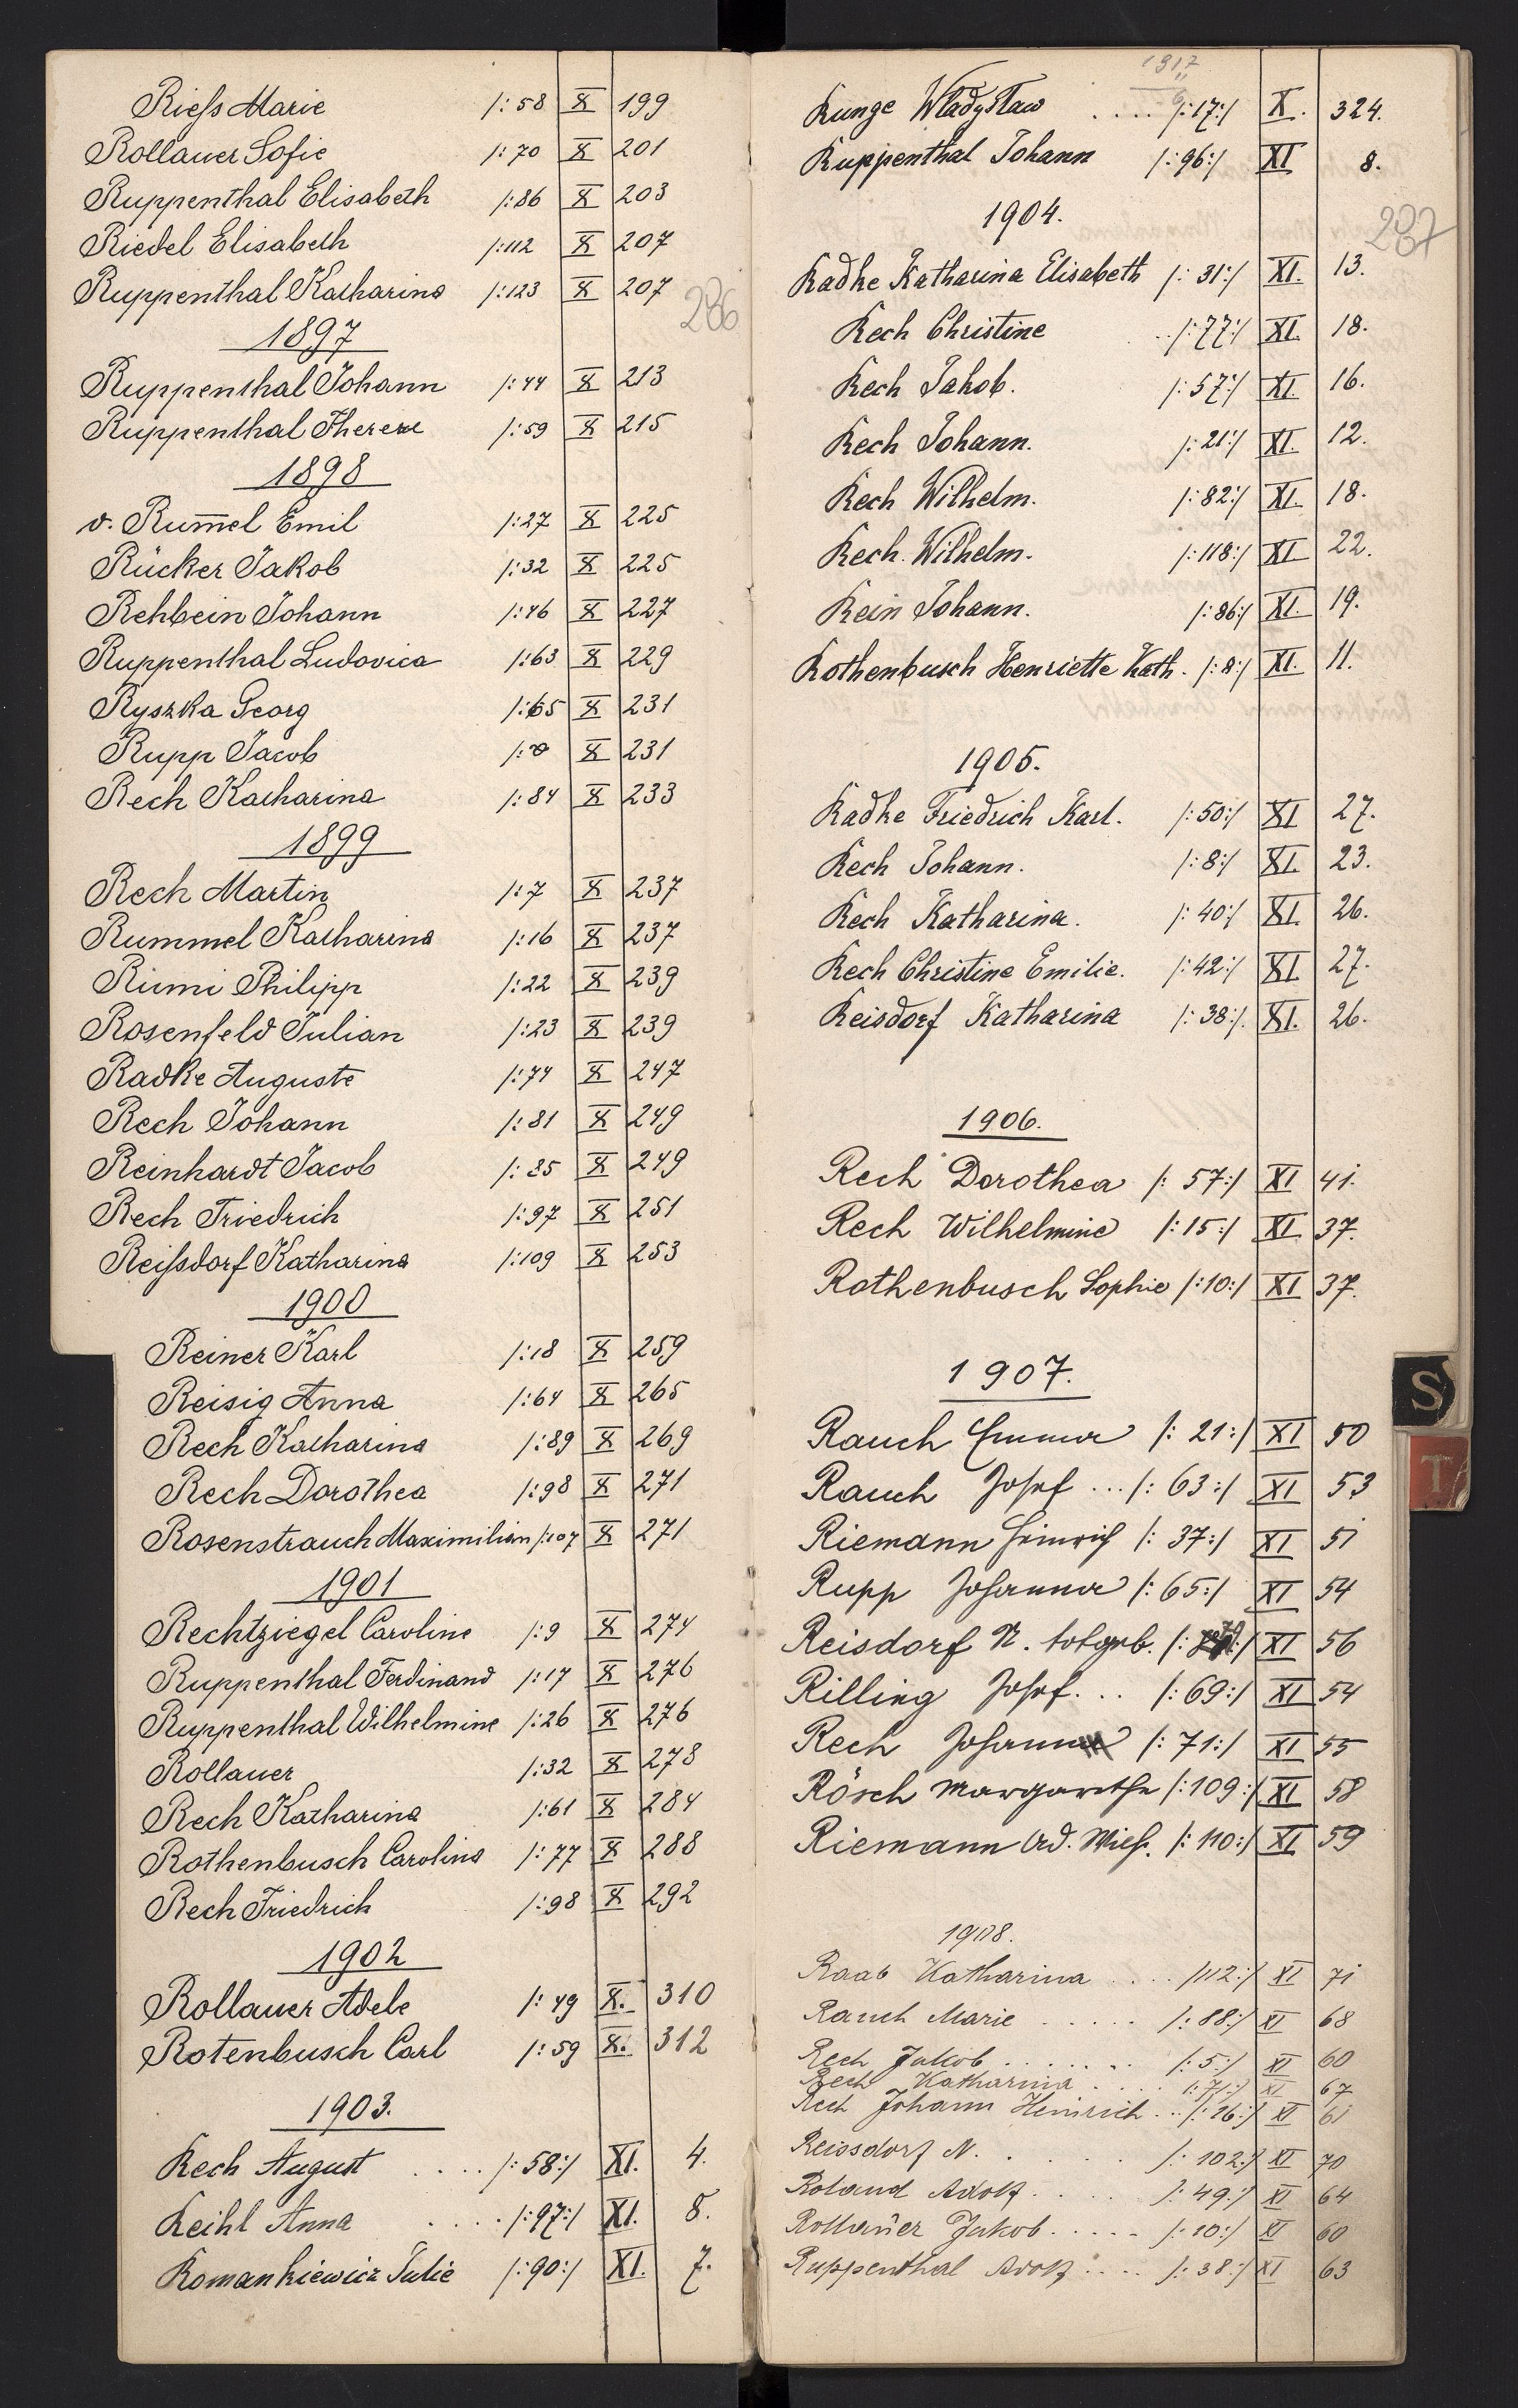 Rieſs Marie /:58 X 199
Rollauer Sofie /:70 X 201
Ruppenthal Elisabeth /:86 X 203
Riedel Elisabeth /:112 X 207
Ruppenthal Katharina /:123 X 207
286
1897
Ruppenthal Johann /:44 X 213
Ruppenthal Therese /:59 X 215
1898
v. Rum̅el Emil /:27 X 225
Rücker Jakob /:32 X 225
Rehbein Johann /:46 X 227
Ruppenthal Ludovica /:63 X 229
Ryszka Georg /:65 X 231
Rupp Jacob /: X 231
Rech Katharina /:84 X 233
1899
Rech Martin /:7 X 237
Rummel Katharina /:16 X 237
Riumi Philipp /:22 X 239
Rosenfeld Julian /:23 X 239
Radke Auguste /:74 X 247
Rech Johann /:81 X 249
Reinhardt Jacob /:85 X 249
Rech Friedrich /:97 X 251
Reiſsdorf Katharina /:109 X 253
1900
Reiner Karl /:18 X 259
Reisig Anna /:64 X 265
Rech Katharina /:89 X 269
Rech Dorothea /:98 X 271
Rosenstrauch Maximilian /:107 X 271
1901
Rechtziegel Caroline /:9 X 274
Ruppenthal Ferdinand /:17 X 276
Ruppenthal Wilhelmine /:26 X 276
Rollauer /:32 X 278
Rech Katharina /:61 X 284
Rothenbusch Carolina /:77 X 288
Rech Friedrich /:98 X 292
1902
Rollauer Adele /:49 X. 310
Rotenbusch Carl /:59 X. 312
1903.
Rech August .... /:58:/ XI. 4.
Reihl Anna .... /:97:/ XI. 8.
Romankiewicz Julie /:90:/ XI. 7.
1317
Runge Władysław .... /:17:/ X. 324.
Ruppenthal Johann /:96:/ XI 8.
1904.
287
Radke Katharina Elisabeth /:31:/ XI. 13.
Rech Christine /:77:/ XI. 18.
Rech Jakob. /:57:/ XI. 16.
Rech Johann. /:21:/ XI. 12.
Rech Wilhelm. /:82:/ XI. 18.
Rech Wilhelm. /:118:/ XI 22.
Rein Johann. /:86:/ XI. 19.
Rothenbusch Henriette Kath. /:8:/ XI. 11.
1905.
Radke Friedrich Karl. /:50:/ XI 27.
Rech Johann. /:8:/ XI. 23.
Rech Katharina. /:40:/ XI. 26.
Rech Christine Emilie. /:42:/ XI 27.
Reisdorf Katharina /:38:/. XI. 26.
1906.
Rech Dorothea /:57:/ XI 41.
Rech Wilhelmine /:15:/ XI 37.
Rothenbusch Sophie /:10:/ XI 37.
1907.
Rauch Emma /:21:/ XI 50
Rauch Josef ... /:63:/ XI 53
Riemann Heinrich /:37:/ XI 51
Rupp Johanna /:65:/ XI 54
Reisdorf N. totgeb. XI 56
Rilling Josef... /:69:/ XI 54
Rech Johann /:71:/ XI 55
Rösch Margarethe /:109:/ XI 58
Riemann Ad. Wilh. /:110:/ XI 59
1908.
Raab Katharina .... /112:/ XI 71
Rauch Marie ..... /:88:/ XI 68
Rech Jakob ....... /:5:/ XI 60
Rech Katharina .... /:71:/ XI 67
Rech Johann Heinrich .. /:16:/ XI 61
Reissdorf N. ..... /:102:/ XI 70
Roland Adolf .... /:49:/ XI 64
Rollauer Jakob ..... /:10:/ XI 60
Ruppenthal Adolf .... /:38:/ XI 63
S
T